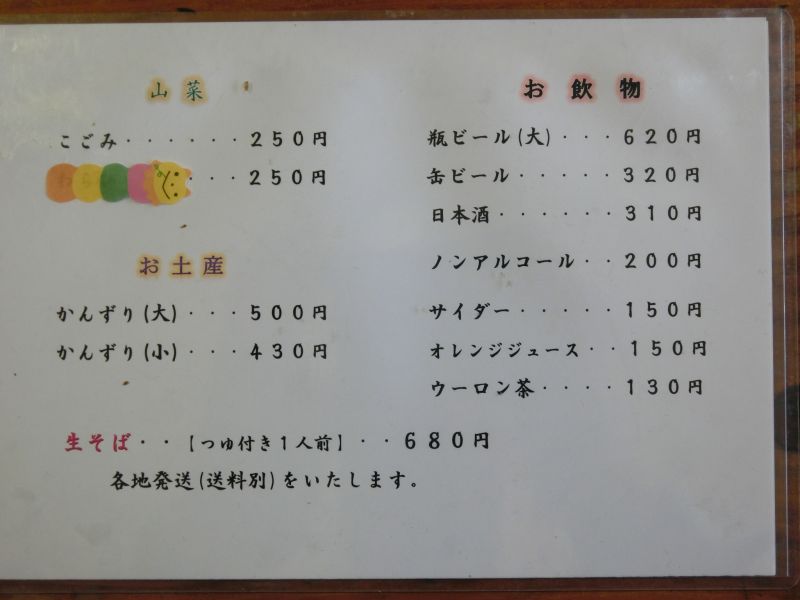 山菜
こごみ・・・・・・250円
・・・250円
お土産
かんずり(大)・・・500円
かんずり(小)・・・430円
お飲物
瓶ビール(大)・・・620円
缶ビール・・・・・320円
日本酒・・・・・・310円
ノンアルコール・・200円
サイダー・・・・・150円
オレンジジュース・・150円
ウーロン茶・・・・130円
生そば・・【つゆ付き1人前】・・680円
各地発送(送料別)をいたします。